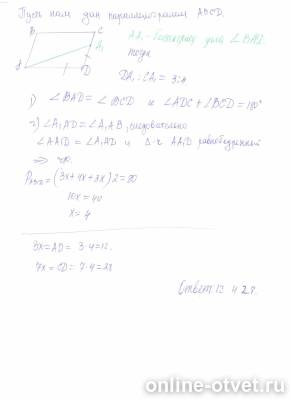 Пусть нам дан параллелограмм ABCD.
B C
A₁
A D
AA₁ - биссектриса угла ∠BAD.
тогда
DA₁ : CA₁ = 3:4
1) ∠BAD = ∠BCD и ∠ADC + ∠BCD = 180°
2) ∠A₁AD = ∠A₁AB, следовательно
∠AA₁D = ∠A₁AD и Δ-к AA₁D равнобедренный
⇒ что.
P = (3x+4x+3x)2=80
10x = 40
x = 4
3x = AD = 3·4=12.
7x = CD = 7·4=28
Ответ 12 и 28.
online-otvet.ru